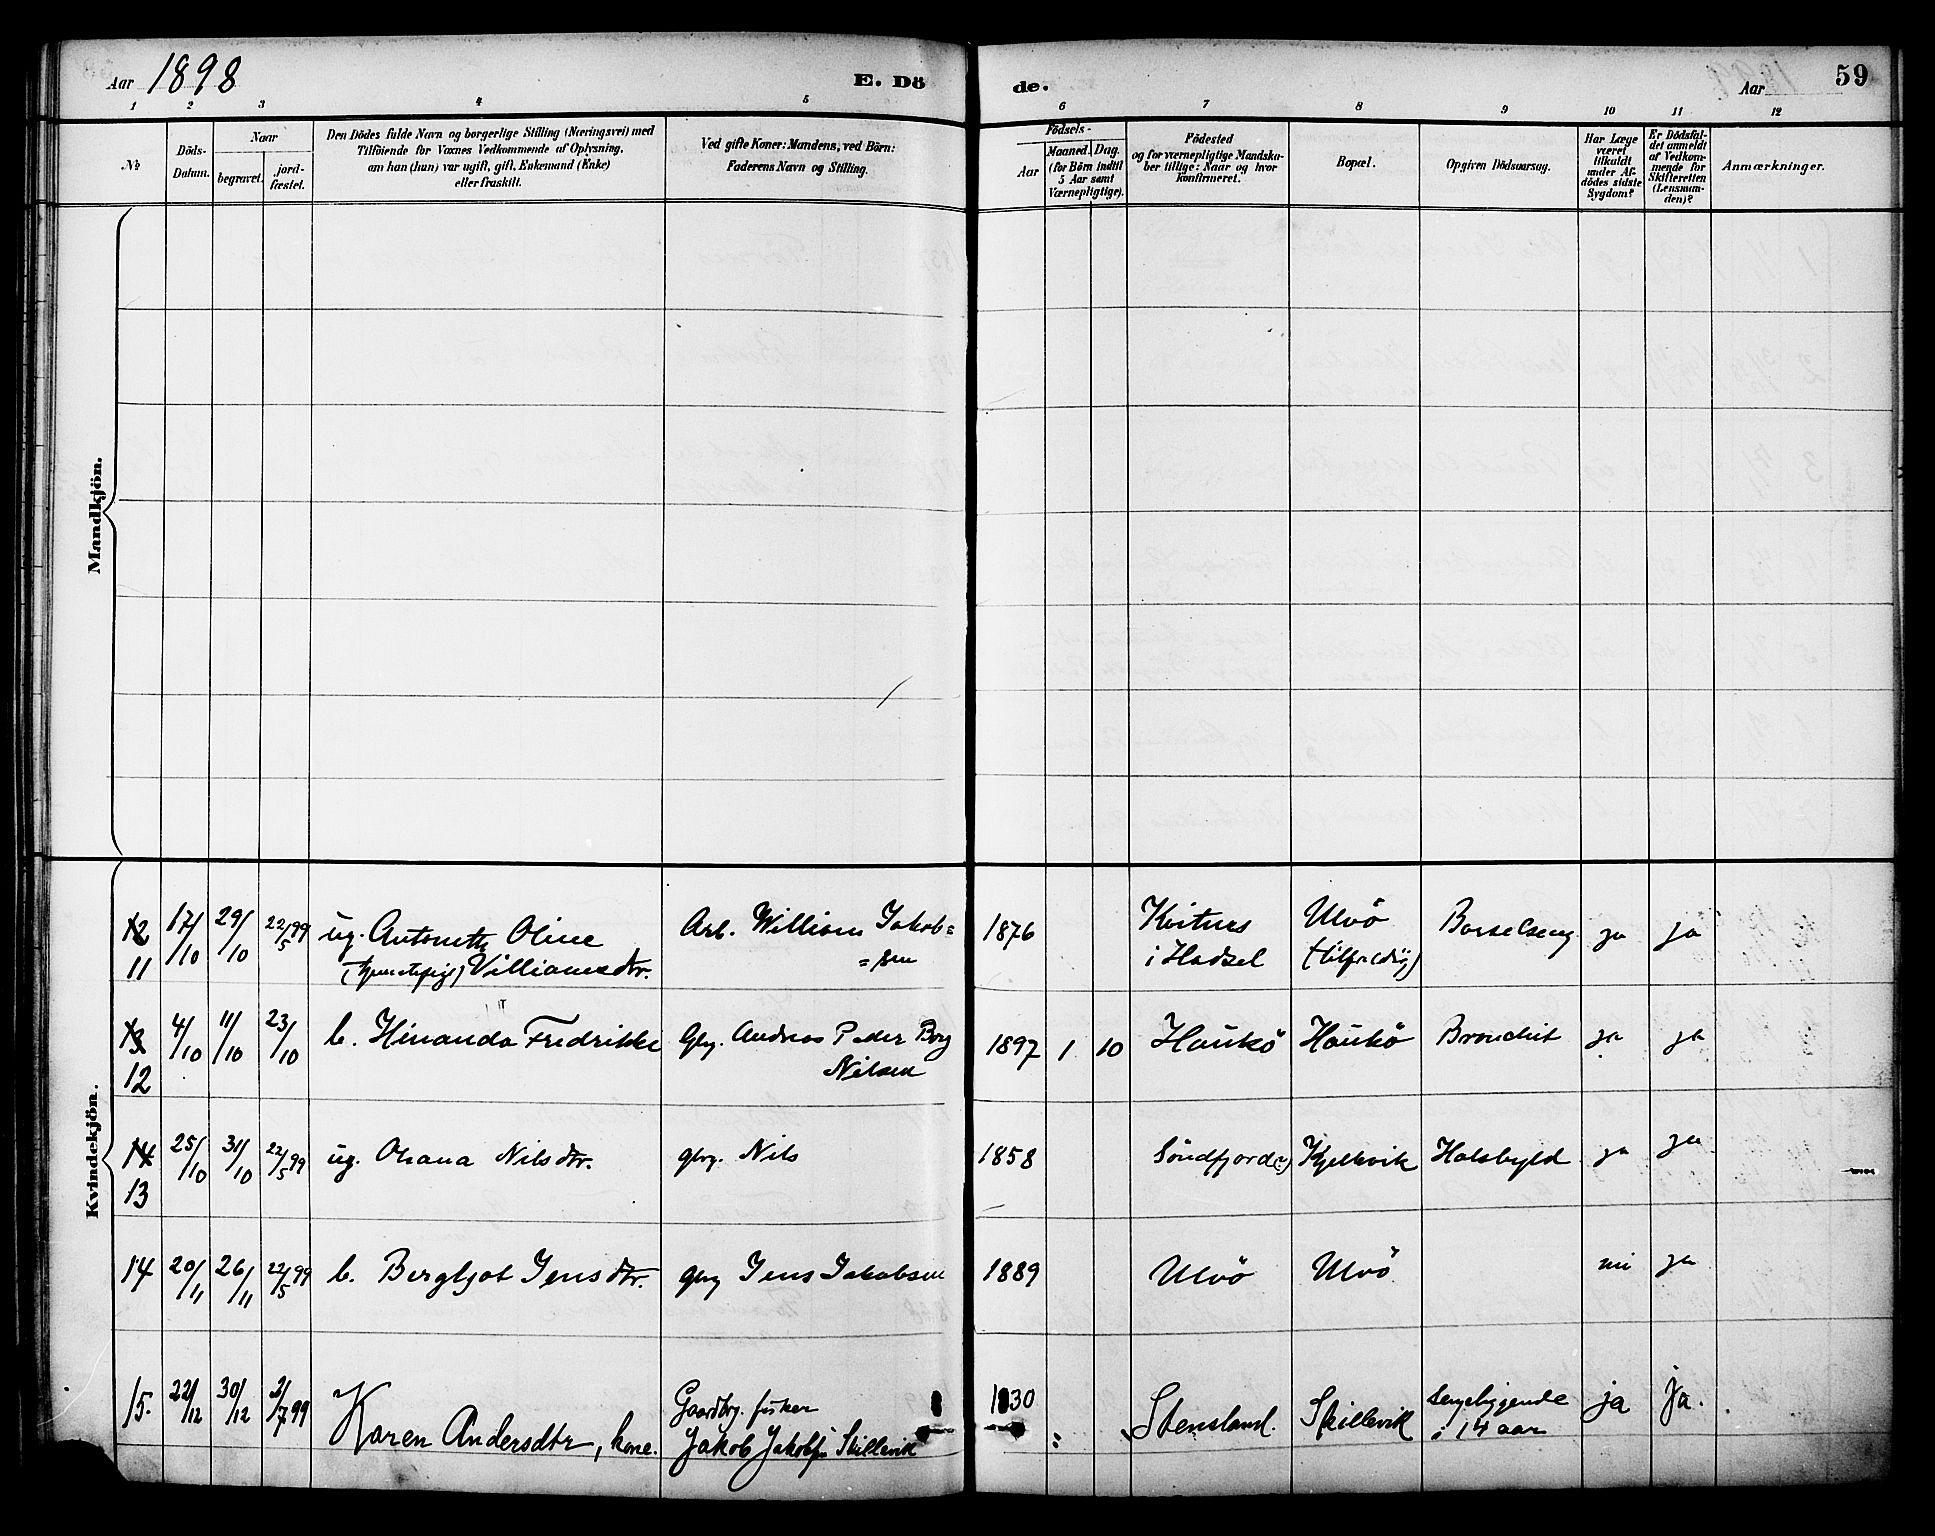 Aar 1898
E. Dö
de.
Aar
59
1 2 3 4 5 6 7 8 9 10 11 12
№
Döds-
Datum.
Naar
begravet.
jord-
fæstet.
Den Dödes fulde Navn og borgerlige Stilling (Næringsvei) med
Tilföiende for Voxnes Vedkommende af Oplysning,
om han (hun) var ugift, gift, Enkemand (Enke)
eller fraskilt.
Ved gifte Koner: Mandens, ved Börn:
Faderens Navn og Stilling.
Födsels-
Aar
Maaned. Dag.
(for Börn indtil
5 Aar samt
Værnepligtige).
Födested
og for værnepligtige Mandska-
ber tillige: Naar og hvor
konfirmeret.
Bopæl.
Opgiven Dödsaarsag.
Har Læge
været
tilkaldt
under Af-
dödes sidste
Sygdom?
Er Dödsfal-
det anmeldt
af Vedkom-
mende for
Skifteretten
(Lensman-
den)?
Anmærkninger.
Mandkjön.
Kvindekjön.
12 17/10 29/10 22/5 99 ug. Antonette Oline Arb. William Jakob= 1876 Kvitnes Ulvö Barselseng ja ja
11 Villiamsdtr. =sen i Hadsel
13 4/10 11/10 23/10 b. Hinanda Fredrikke Gbr. Andreas Peder Borg 1897 1 10 Haukö Haukö Bronchit ja ja
12 Nilsen
14 25/10 31/10 22/5 99 ug. Olsana Nilsdtr. gbr. Nils 1858 Söndfjord(?) Kjelkvik Halsbyld ja ja
13
14 20/11 26/11 22/5 99 b. Bergljot Jensdtr. gbr Jens Jakobsen 1889 Ulvö Ulvö nei ja
15. 22/12 30/12 2/7 99 Karen Andersdtr, kone. Gaardbr. fisker 1830 Stensland. Skillevik Sengeliggende ja ja.
Jakob Jakobs. Skillevik i 14 aar